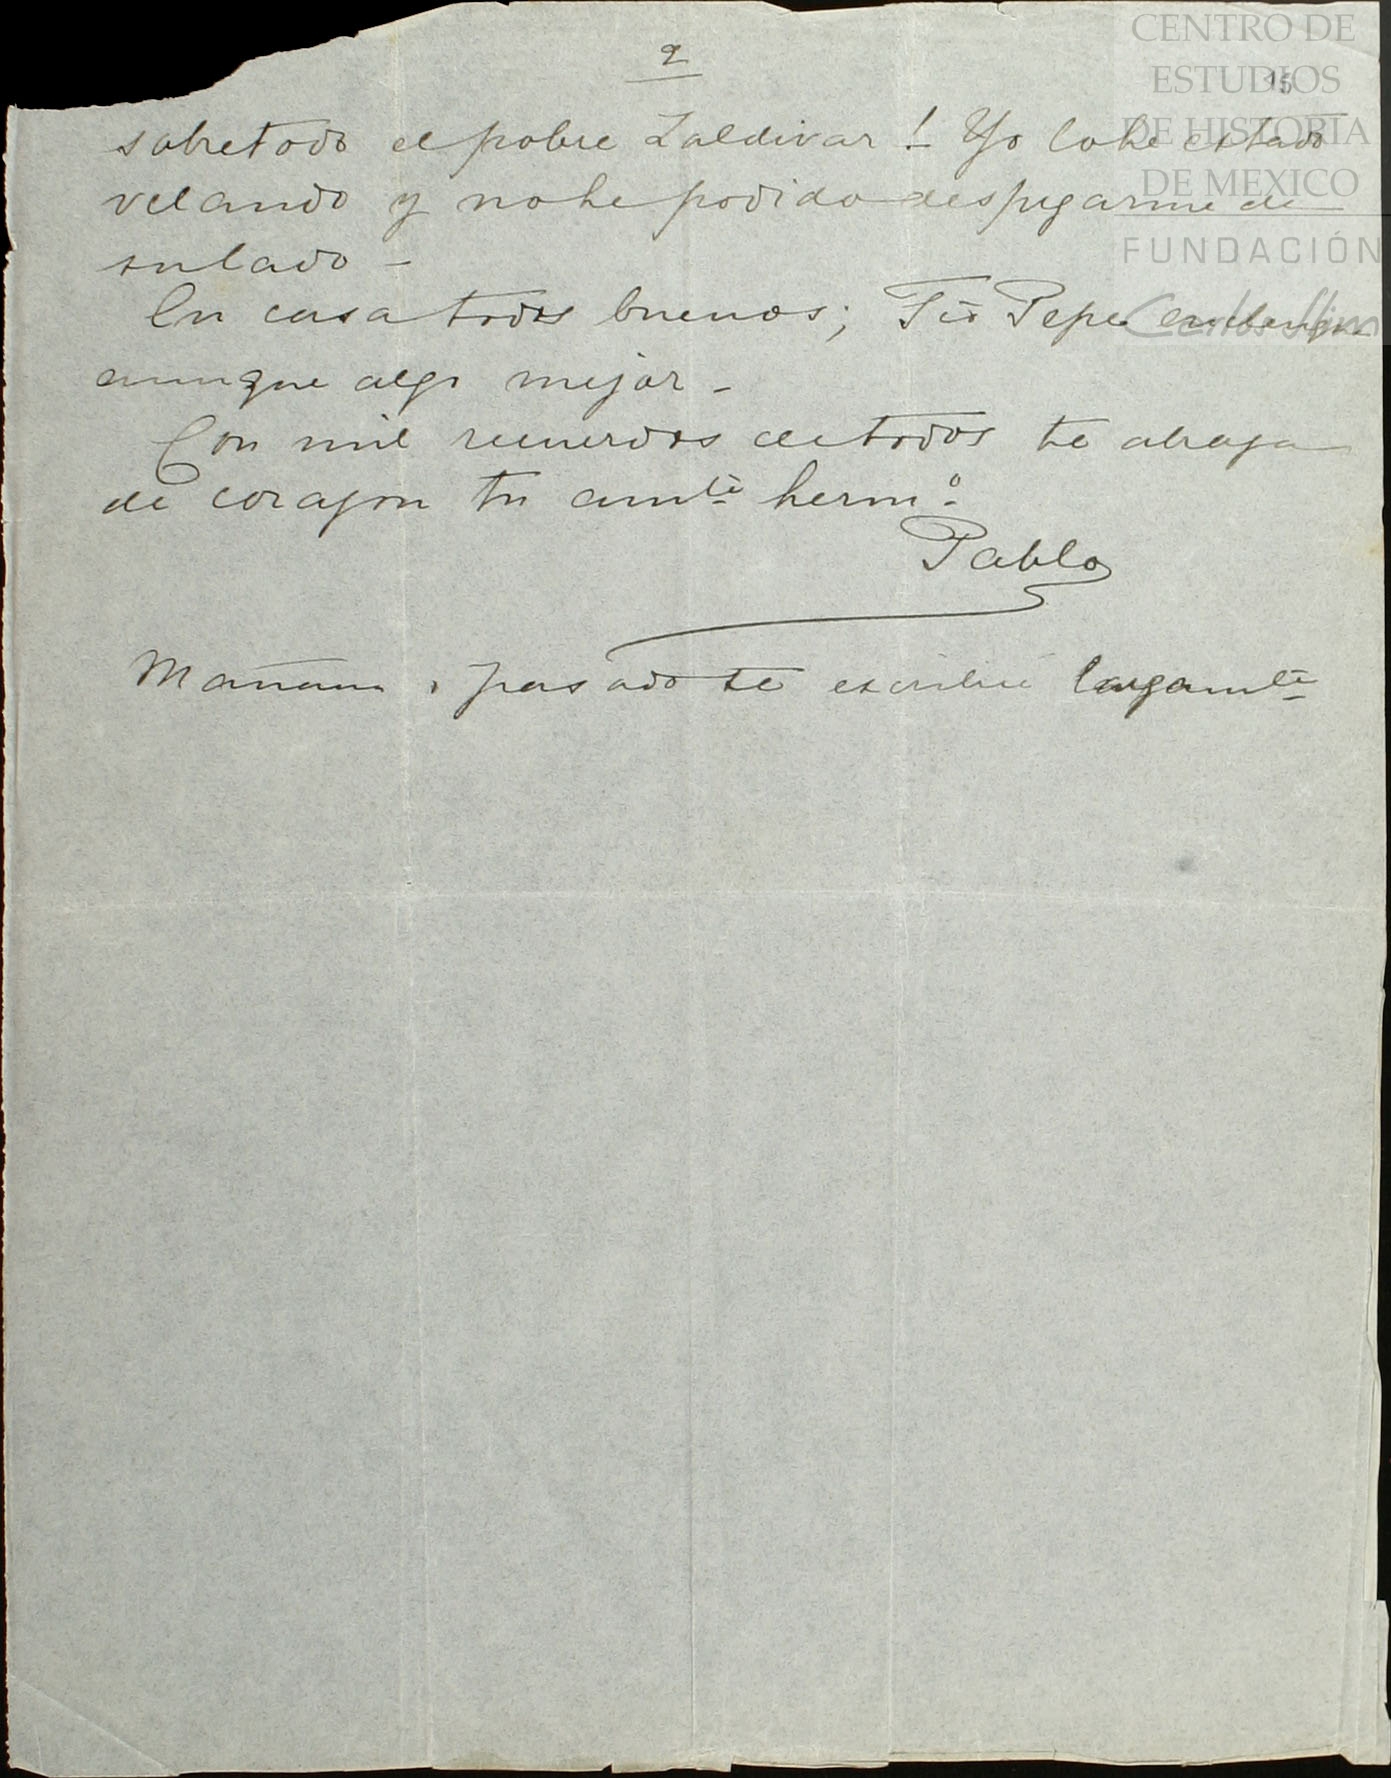 2
15
CENTRO DE
ESTUDIOS
DE HISTORIA
DE MEXICO
FUNDACIÓN
Carlos Slim
sobretodo el pobre Zaldivar! Yo lo he estado
velando y no he podido despegarme de
su lado –
En casa todos buenos; Tío Pepe
aunque algo mejor –
Con mil recuerdos de todos te abraza
de corazon tu amte hermo
Pablo
Mañana o pasado te escribiré largamte